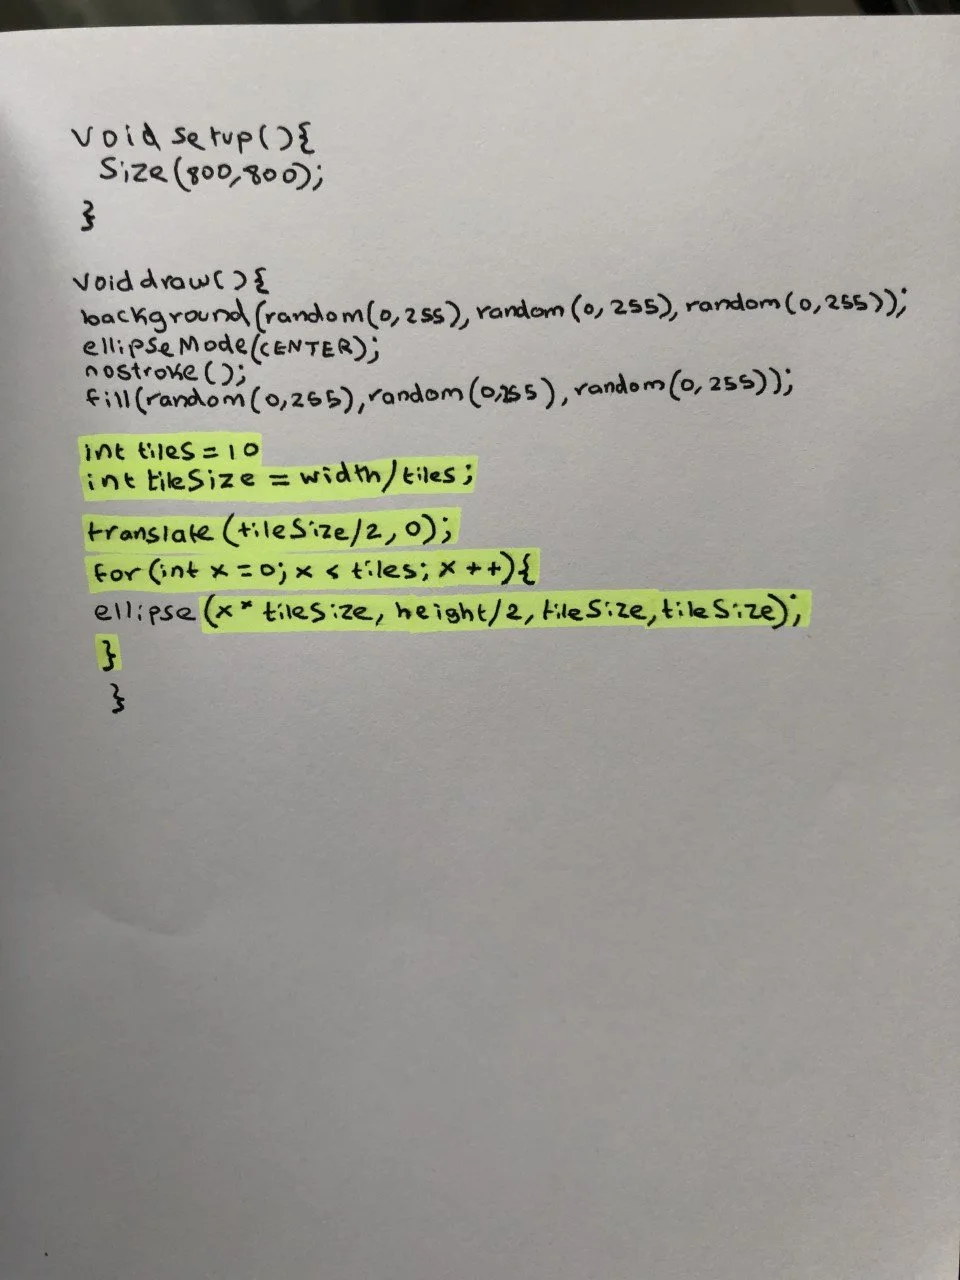 void setup(){
Size(800,800);
}
void draw(){
background(random(0,255),random(0,255),random(0,255));
ellipseMode(CENTER);
nostroke();
fill(random(0,255),random(0,255),random(0,255));
int tiles=10
int tileSize = width/tiles;
translate(tileSize/2,0);
for(int x=0;x < tiles; x++){
ellipse(x* tileSize, height/2,tileSize,tileSize);
}
}